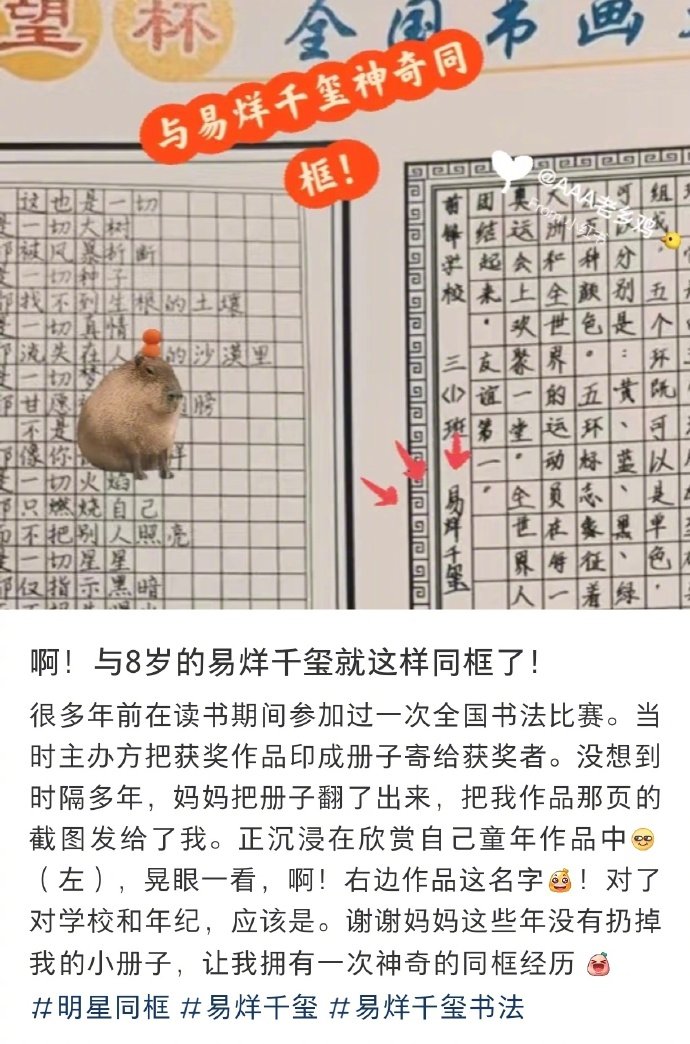 望杯 全国书画
与易烊千玺神奇同
框！
@AAA老乡鸡
From小红书
这也是一切
是一切大树
都被风暴折断
是一切种子
都找不到生根的土壤
是一切真情
都流失在人的沙漠里
是一切梦
都甘愿膀
不是
都像你样
是一切火焰
都只燃烧自己
而不把别人照亮
是一切星星
都仅指示黑暗
五个环既可以是单色
分别是：黄、蓝、黑、绿
种颜色。五环标志象征着
大洲和全世界的运动员在每一
奥运会上欢聚一堂。全世界人
团结起来。友谊第一。
前锋学校 三〈1〉班 易烊千玺
啊！与8岁的易烊千玺就这样同框了！
很多年前在读书期间参加过一次全国书法比赛。当
时主办方把获奖作品印成册子寄给获奖者。没想到
时隔多年，妈妈把册子翻了出来，把我作品那页的
截图发给了我。正沉浸在欣赏自己童年作品中
（左），晃眼一看，啊！右边作品这名字！对了
对学校和年纪，应该是。谢谢妈妈这些年没有扔掉
我的小册子，让我拥有一次神奇的同框经历
#明星同框 #易烊千玺 #易烊千玺书法